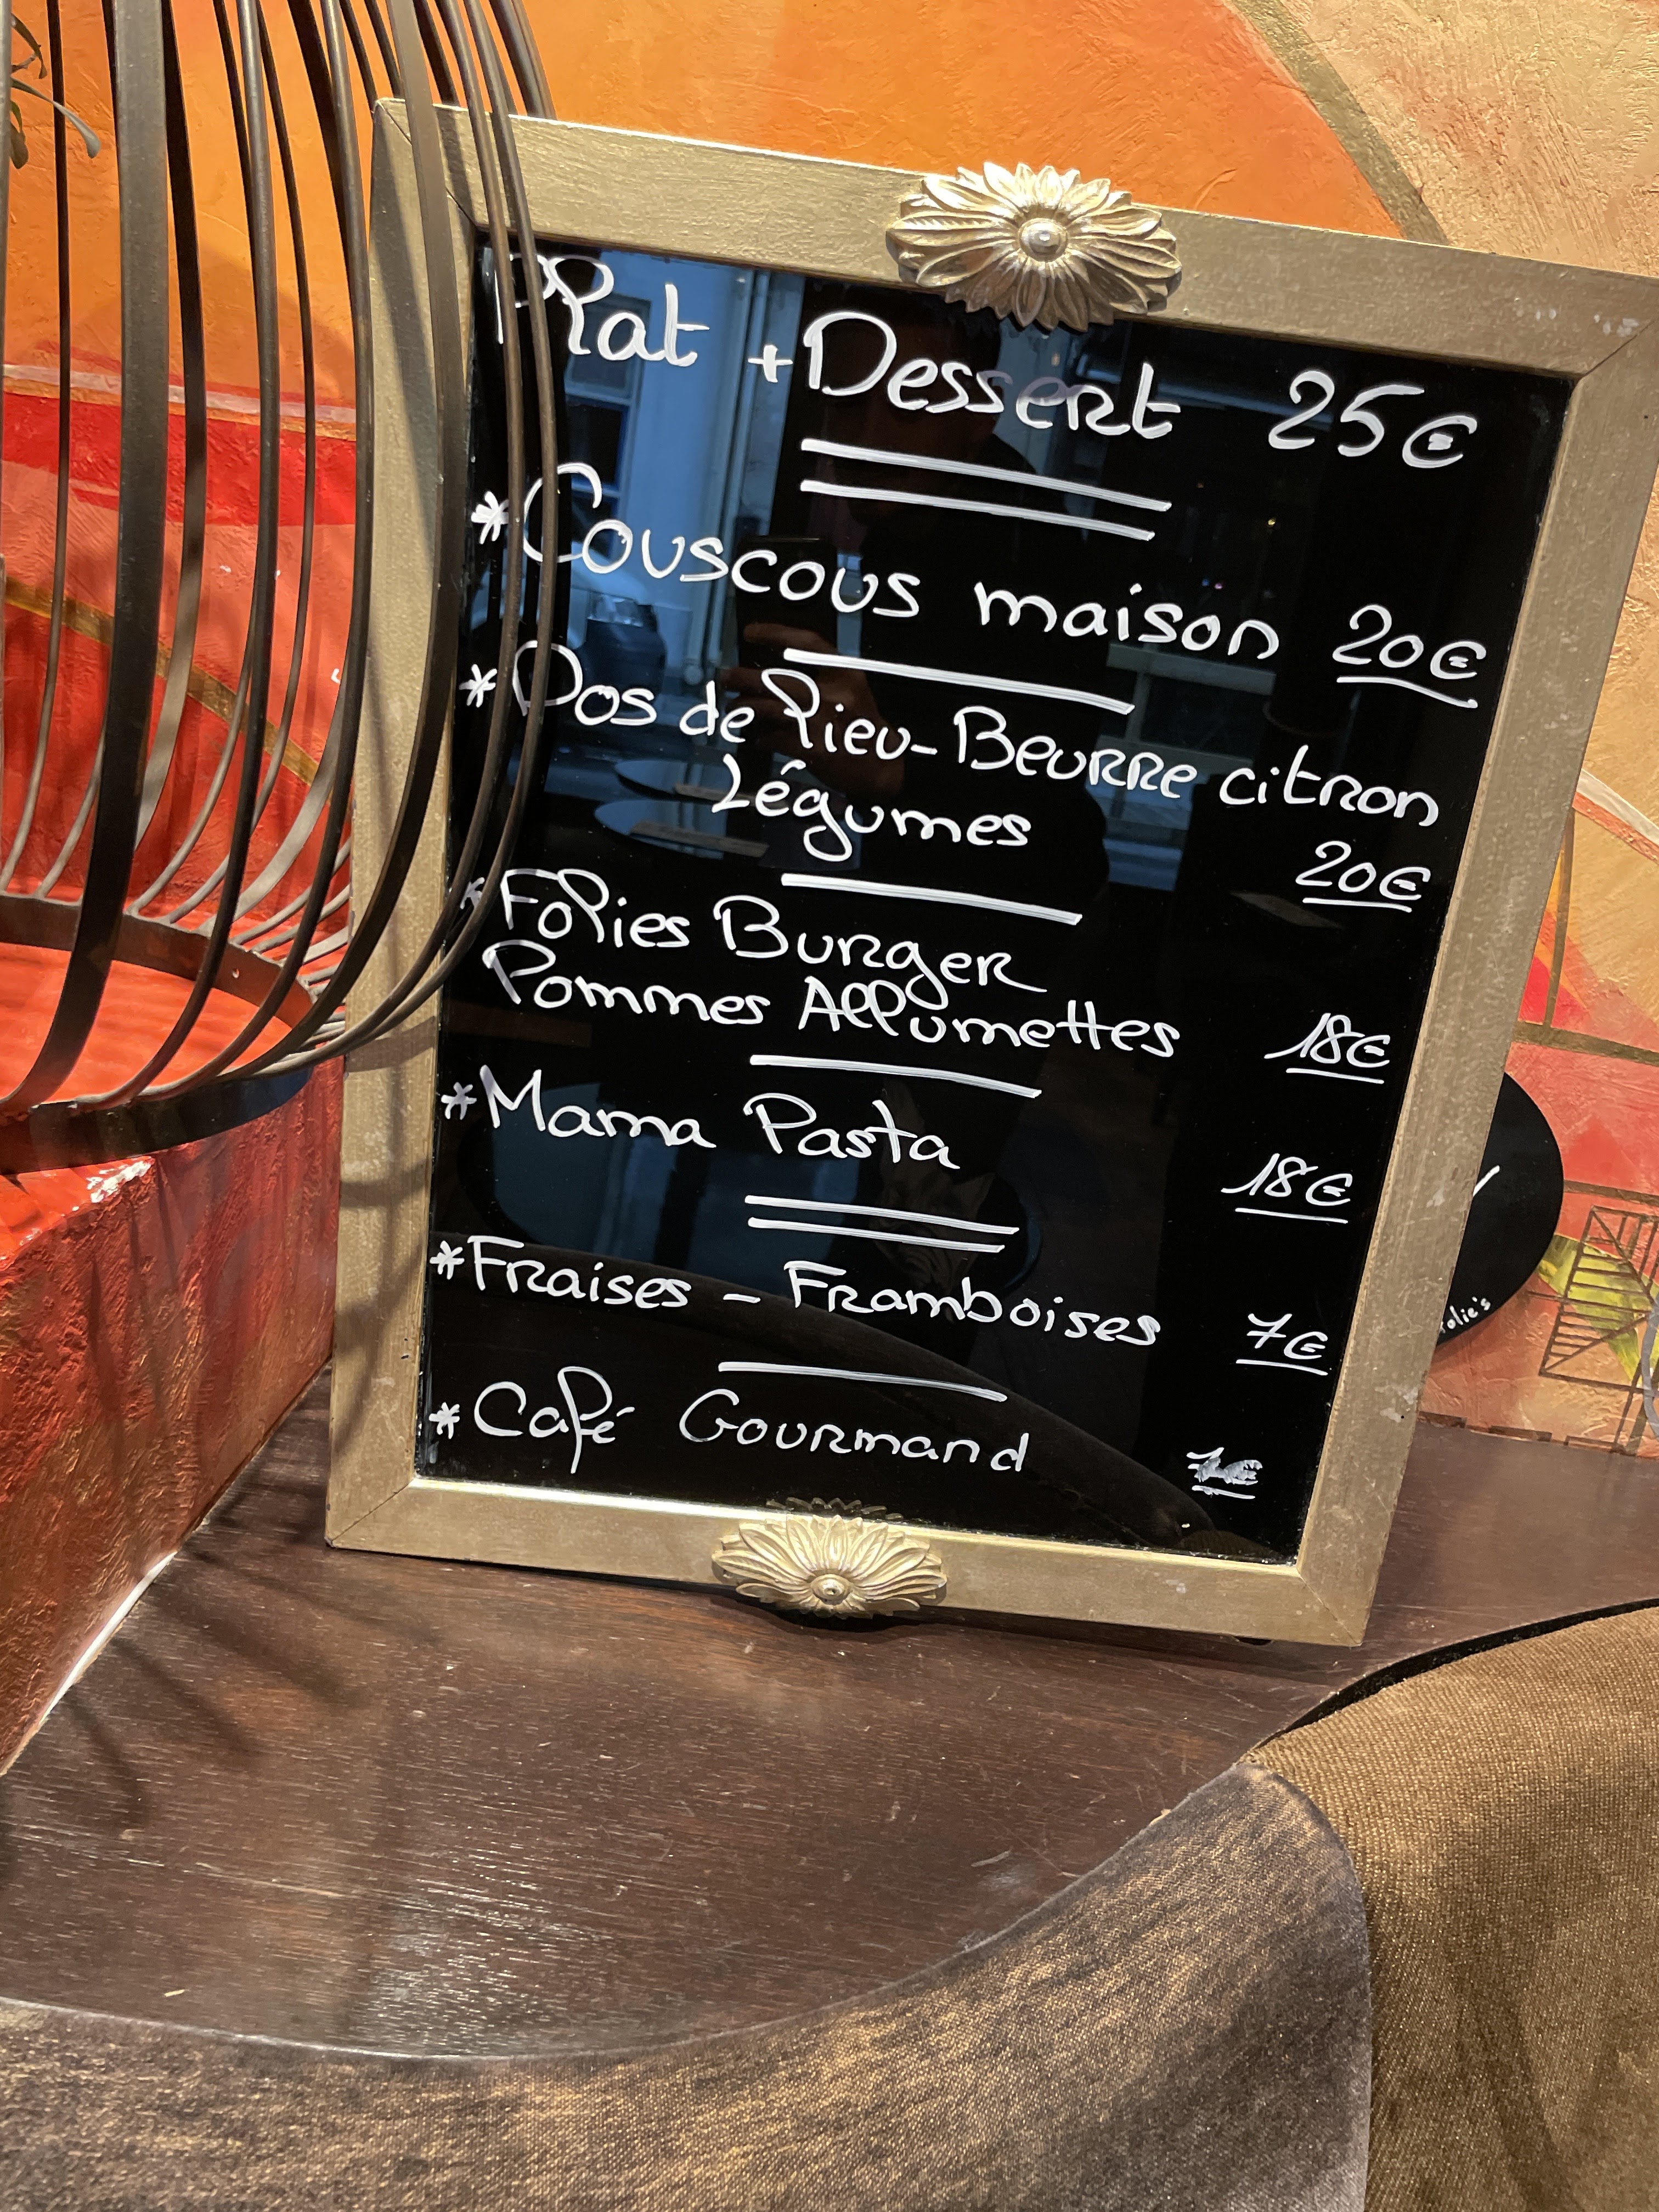 Plat + Dessert 25€
* Couscous maison 20€
* Dos de lieu - Beurre citron
Légumes 20€
* Folies Burger
Pommes Allumettes 18€
* Mama Pasta 18€
* Fraises - Framboises 7€
* Café Gourmand